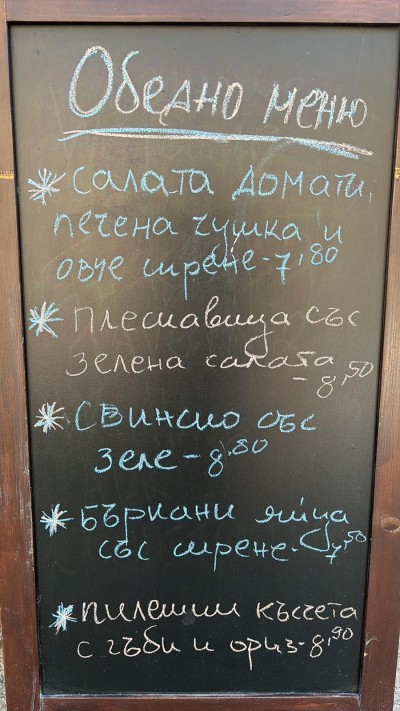 Обедно меню
* САЛАТА ДОМАТИ,
печена чушка и
овче сирене - 7,80
* Плескавица със
зелена салата
- 8,50
* СВИНСКО със
зеле - 8,80
* БЪРКАНИ яйца
със сирене - 7,50
* ПИЛЕШКИ късчета
с гъби и ориз - 8,90